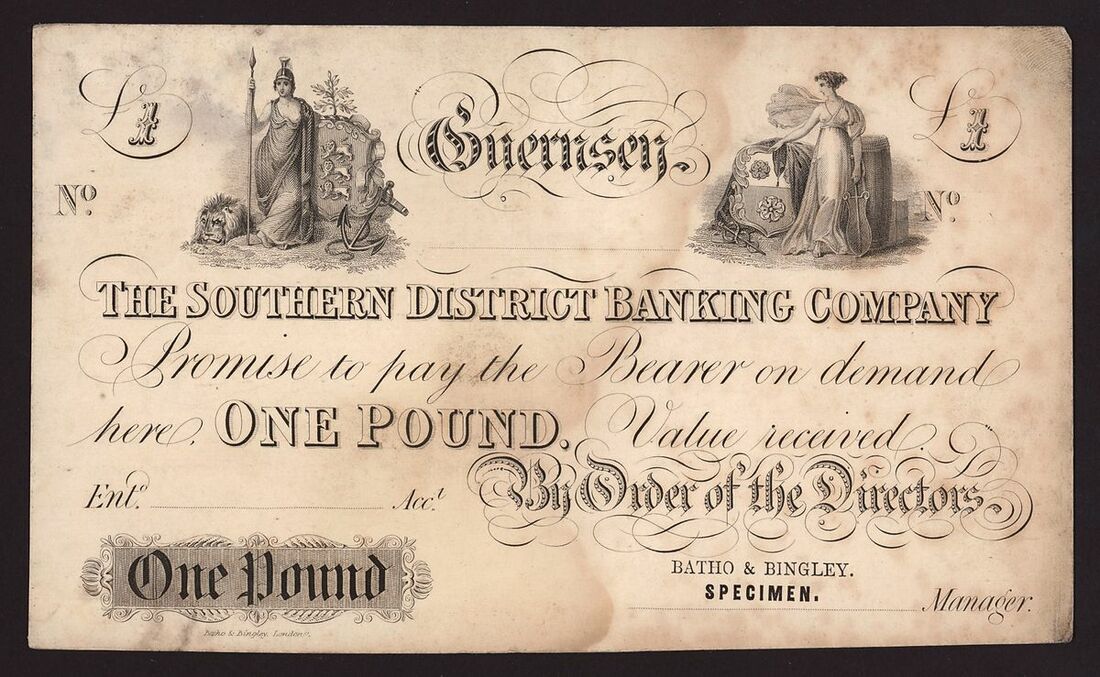 £1
Guernsey.
£1
No.
No.
THE SOUTHERN DISTRICT BANKING COMPANY
Promise to pay the Bearer on demand
here, ONE POUND. Value received.
Ent.d Acc.t
By Order of the Directors.
One Pound
BATHO & BINGLEY.
SPECIMEN.
Manager.
Batho & Bingley, London.